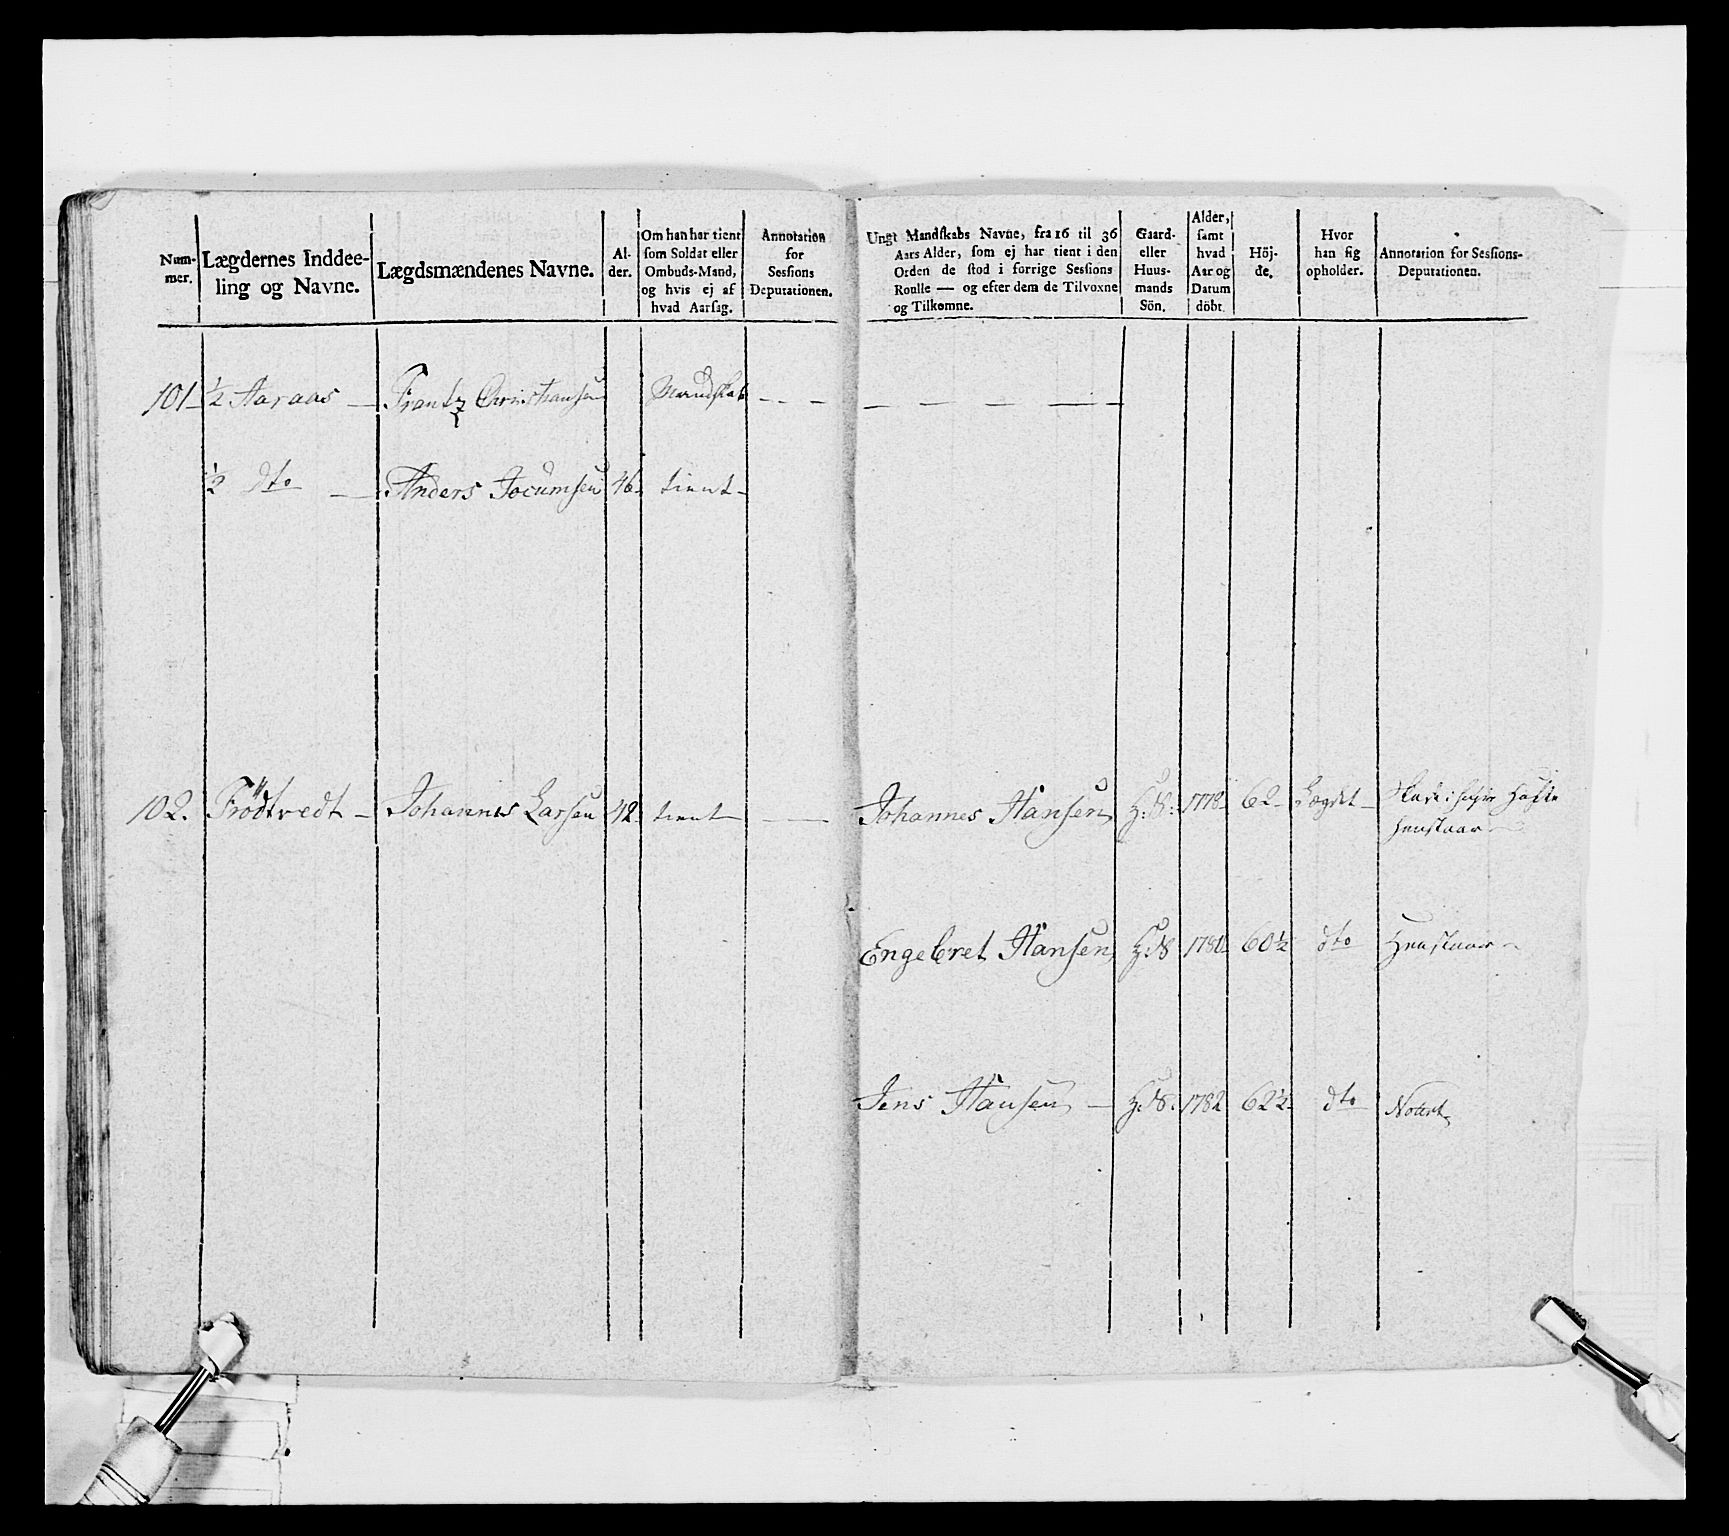 Num-
mer.
Lægdernes Inddee-
ling og Navne.
Lægdsmændenes Navne.
Al-
der.
Om han har tient
som Soldat eller
Ombuds-Mand,
og hvis ej af
hvad Aarsag.
Annotation
for
Sessions
Deputationen.
Ungt Mandskabs Navne, fra 16 til 36
Aars Alder, som ej har tient i den
Orden de stod i forrige Sessions
Roulle — og efter dem de Tilvoxne
og Tilkomne.
Gaard-
eller
Huus-
mands
Sön.
Alder,
samt
hvad
Aar og
Datum
döbt.
Höj-
de.
Hvor
han sig
opholder.
Annotation for Sessions-
Deputationen.
101 ½ Aaraas — Frantz Christiansen Mandskab — — —
½ dto — Anders Jocumsen 46. tient —
102. Frödtvedt — Johannes Larsen 42 tient — Johannes Hansen H:S: 1778 62 Lægdet —
Engebret Hansen H:S 1780 60½ dto
Jens Hansen — H:S: 1782 62½ dto Noteret